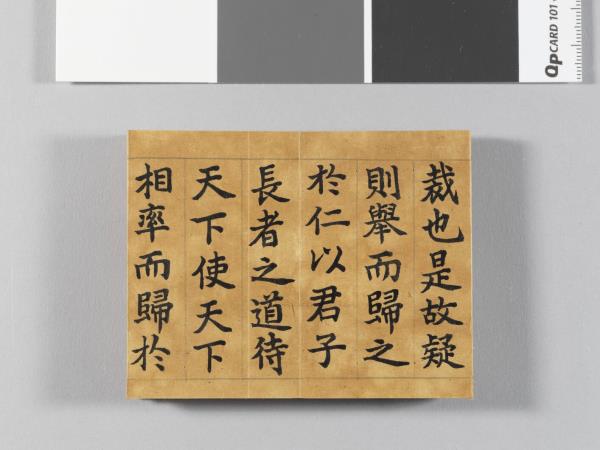 裁也是故疑
則舉而歸之
於仁以君子
長者之道待
天下使天下
相率而歸於
QpCARD 101